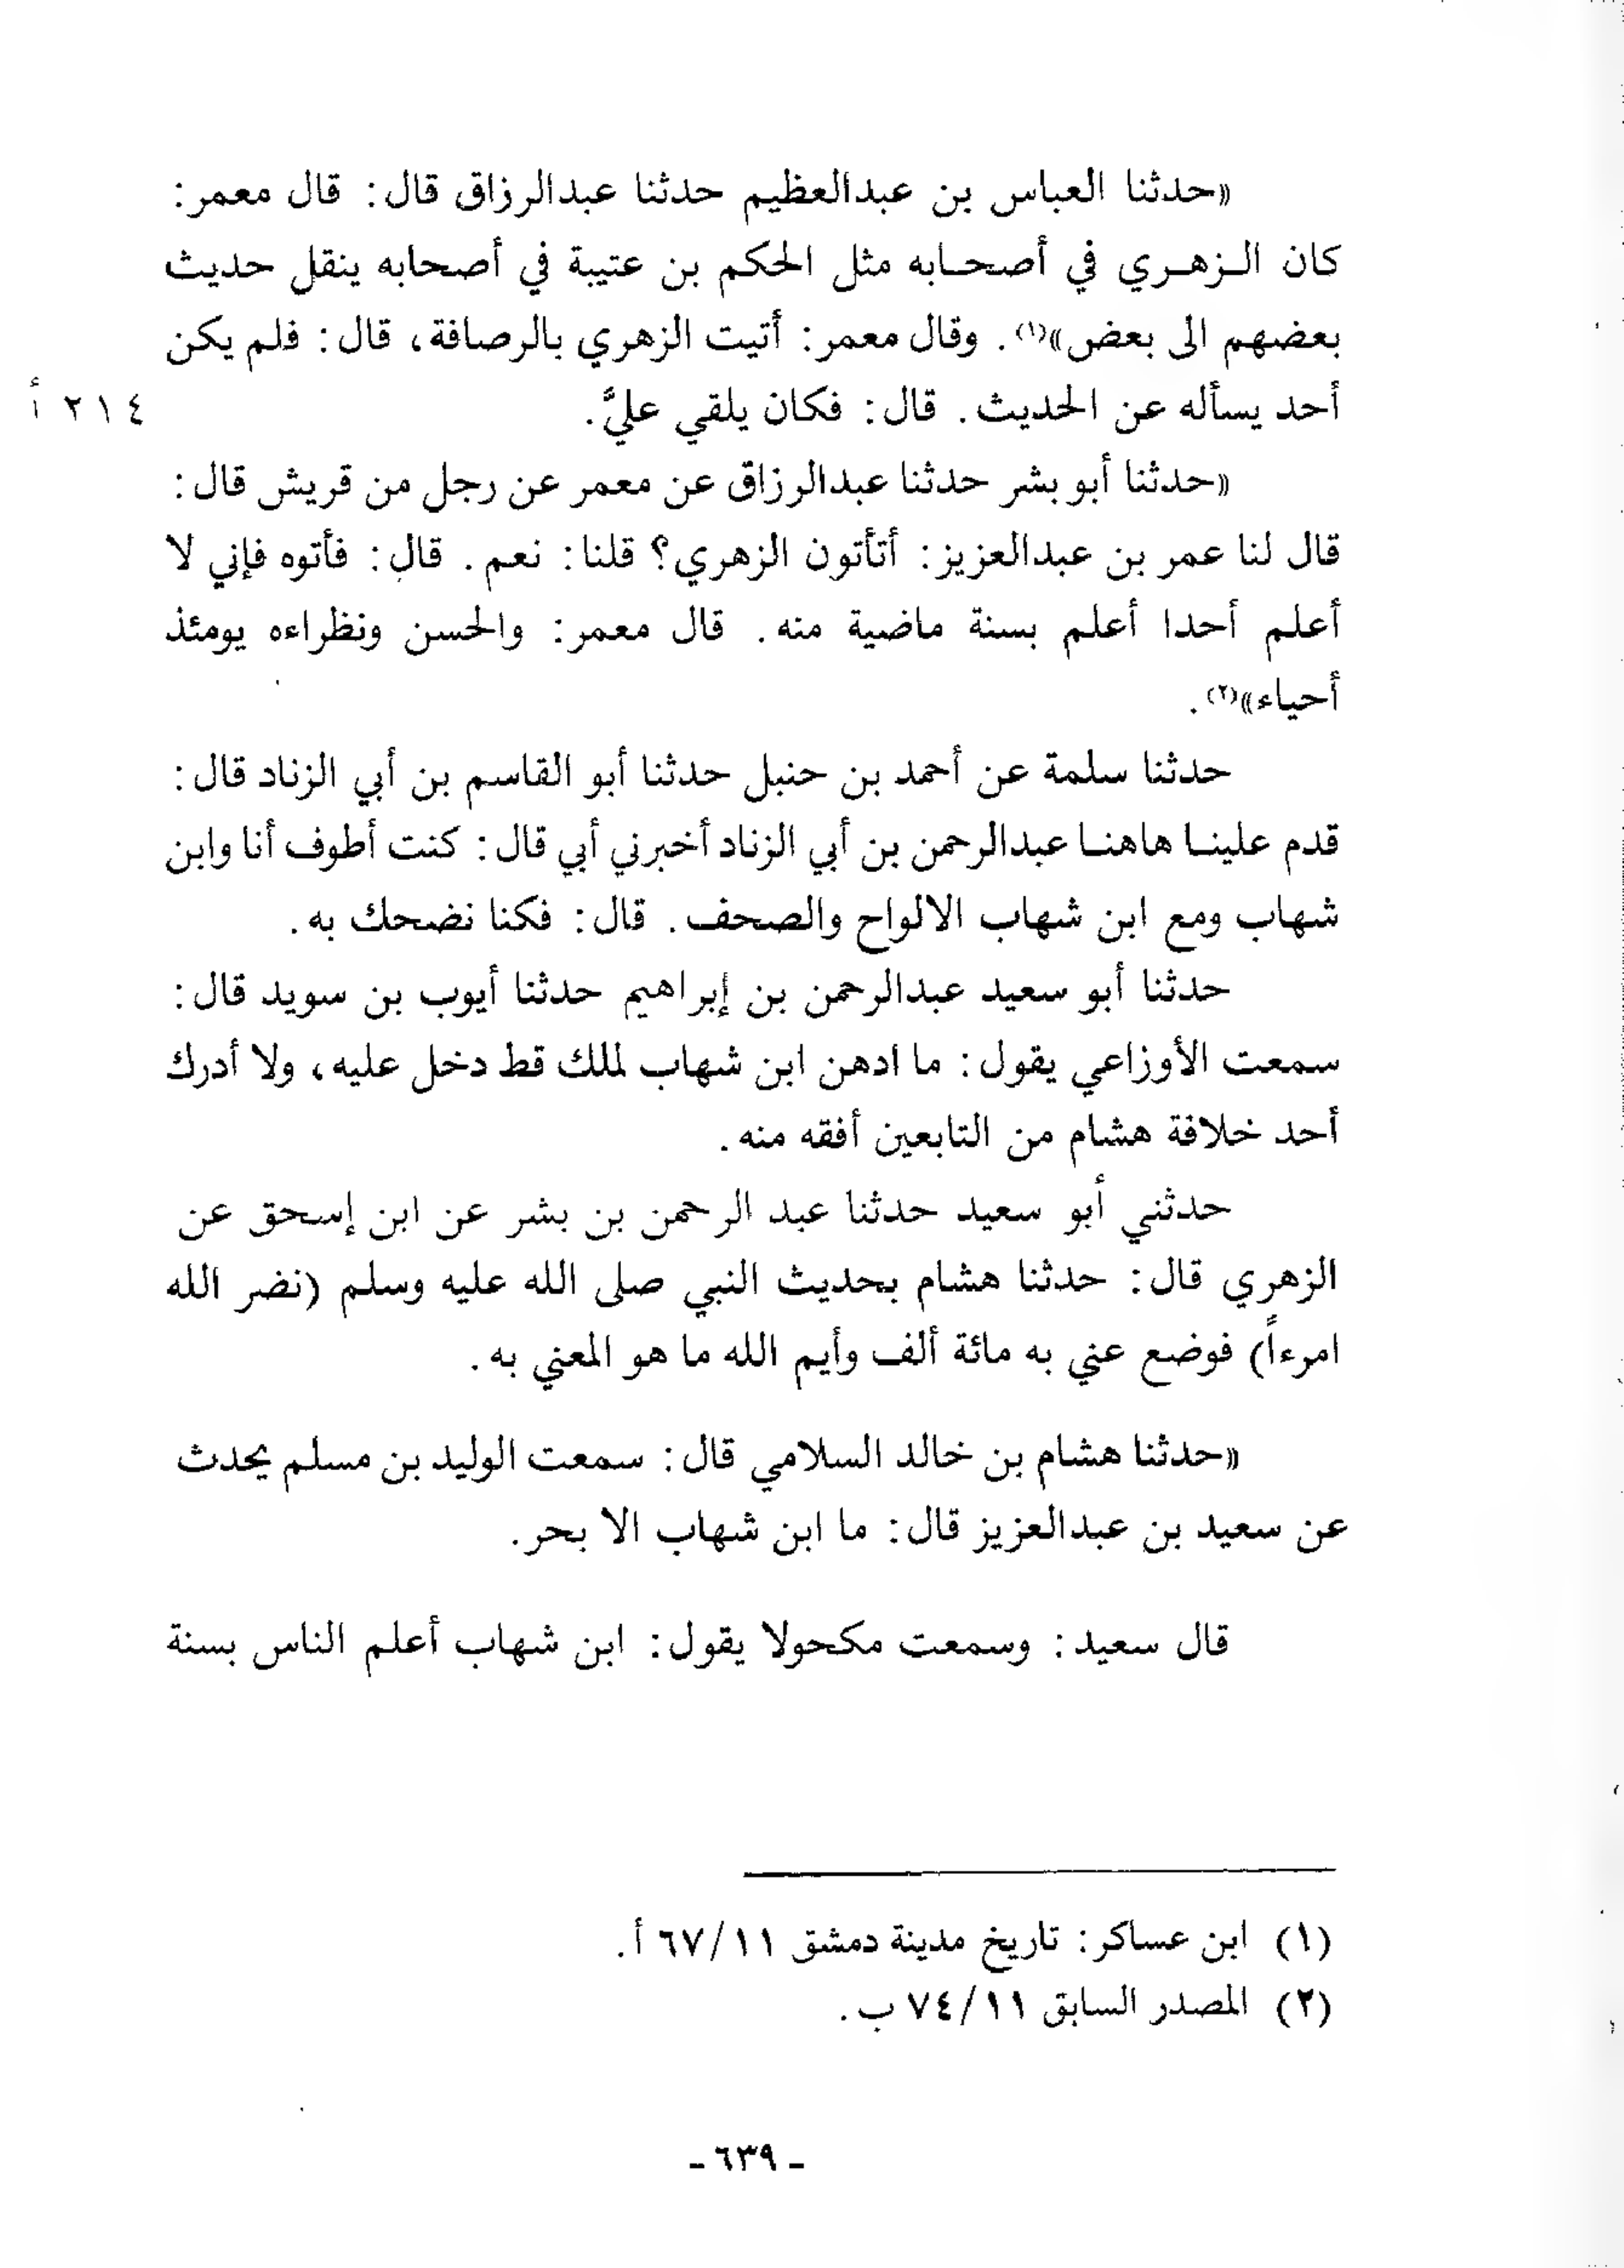 «حدثنا العباس بن عبدالعظيم حدثنا عبدالرزاق قال: قال معمر:
كان الـزهـري في أصحـابه مثل الحكم بن عتيبة في أصحابه ينقل حديث
بعضهم الى بعض»(١). وقال معمر: أتيت الزهري بالرصافة، قال: فلم يكن
أحد يسأله عن الحديث. قال: فكان يلقي عليَّ.
٢١٤ أ
«حدثنا أبو بشر حدثنا عبدالرزاق عن معمر عن رجل من قريش قال:
قال لنا عمر بن عبدالعزيز: أتأتون الزهري؟ قلنا: نعم. قال: فأتوه فإني لا
أعلم أحدا أعلم بسنة ماضية منه. قال معمر: والحسن ونظراءه يومئذ
أحياء»(٢).
حدثنا سلمة عن أحمد بن حنبل حدثنا أبو القاسم بن أبي الزناد قال:
قدم علينـا هاهنـا عبدالرحمن بن أبي الزناد أخبرني أبي قال: كنت أطوف أنا وابن
شهاب ومع ابن شهاب الالواح والصحف. قال: فكنا نضحك به.
حدثنا أبو سعيد عبدالرحمن بن إبراهيم حدثنا أيوب بن سويد قال:
سمعت الأوزاعي يقول: ما ادهن ابن شهاب لملك قط دخل عليه، ولا أدرك
أحد خلافة هشام من التابعين أفقه منه.
حدثني أبو سعيد حدثنا عبد الرحمن بن بشر عن ابن إسحق عن
الزهري قال: حدثنا هشام بحديث النبي صلى الله عليه وسلم (نضر الله
امرءاً) فوضع عني به مائة ألف وأيم الله ما هو المعني به.
«حدثنا هشام بن خالد السلامي قال: سمعت الوليد بن مسلم يحدث
عن سعيد بن عبدالعزيز قال: ما ابن شهاب الا بحر.
قال سعيد: وسمعت مكحولا يقول: ابن شهاب أعلم الناس بسنة
(١) ابن عساكر: تاريخ مدينة دمشق ٦٧/١١ أ.
(٢) المصدر السابق ٧٤/١١ ب.
- ٦٣٩ -